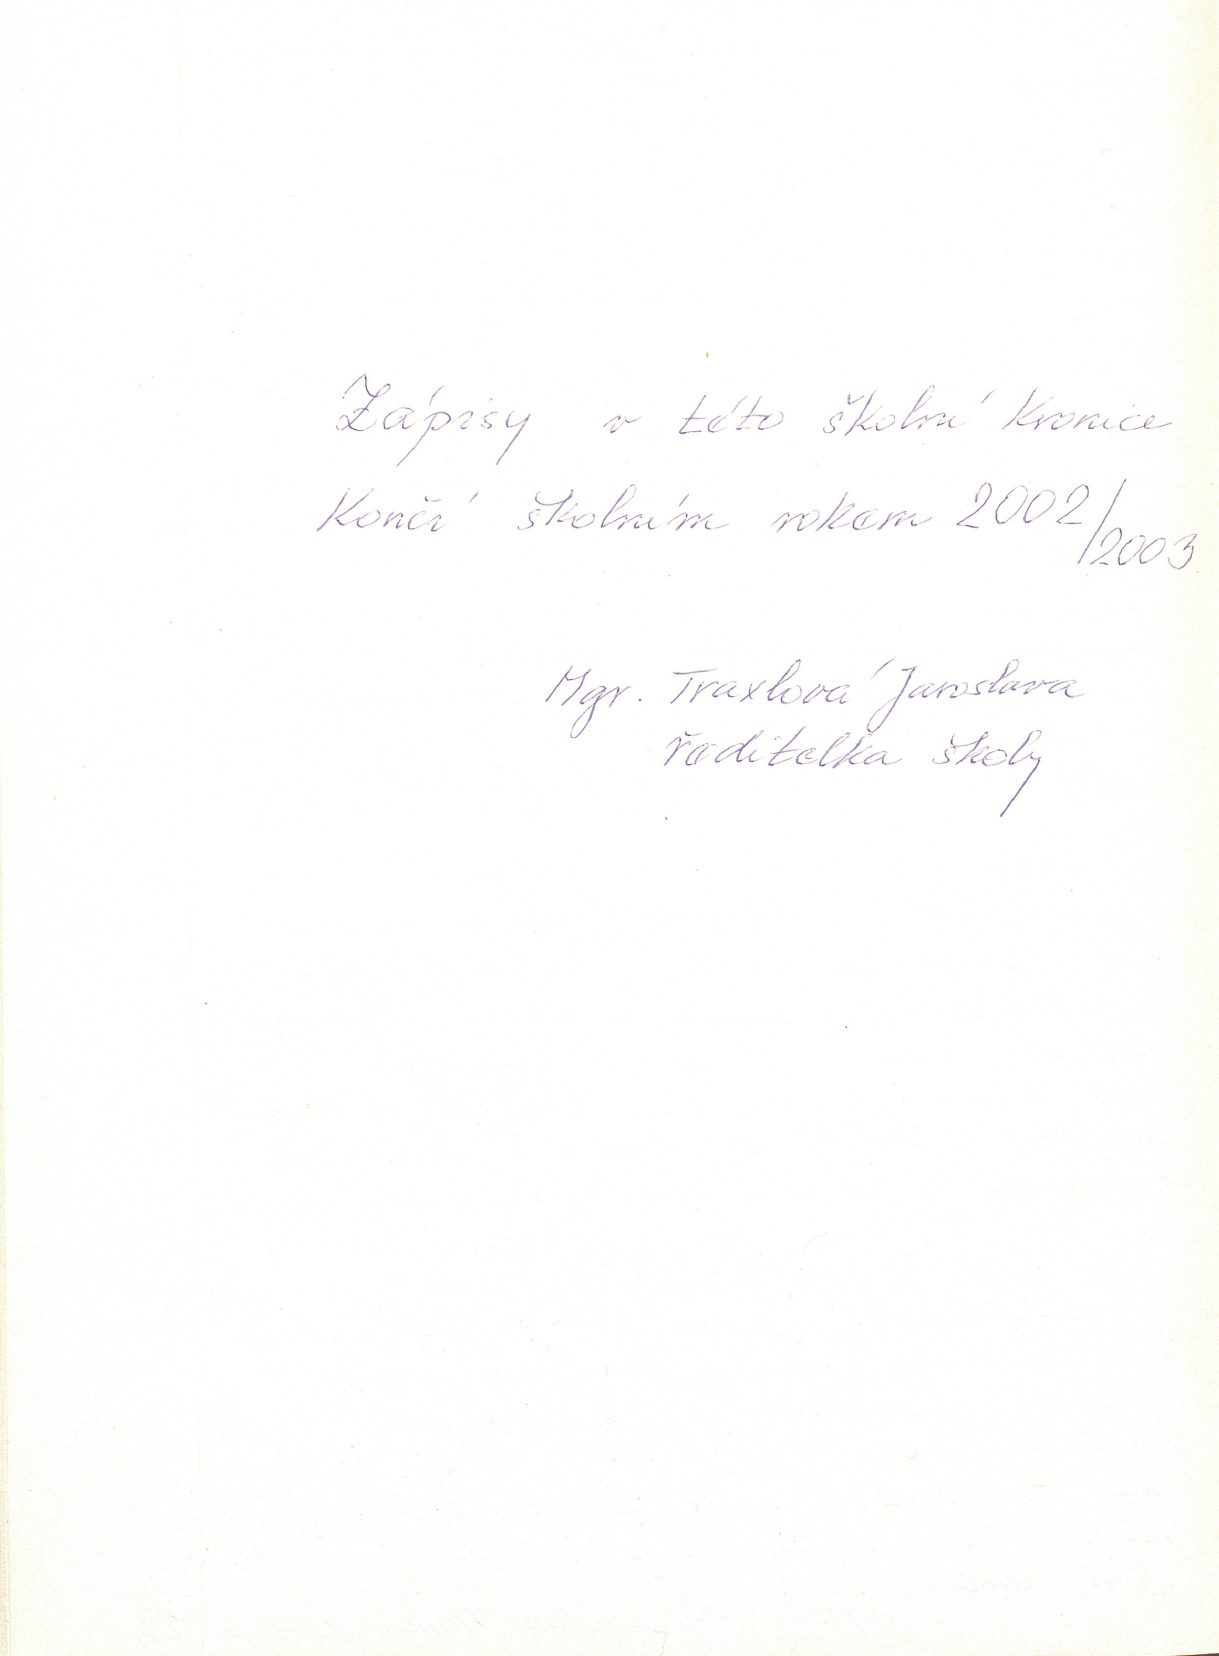 Zápisy v této školní kronice
končí školním rokem 2002/2003
Mgr. Traxlová Jaroslava
ředitelka školy